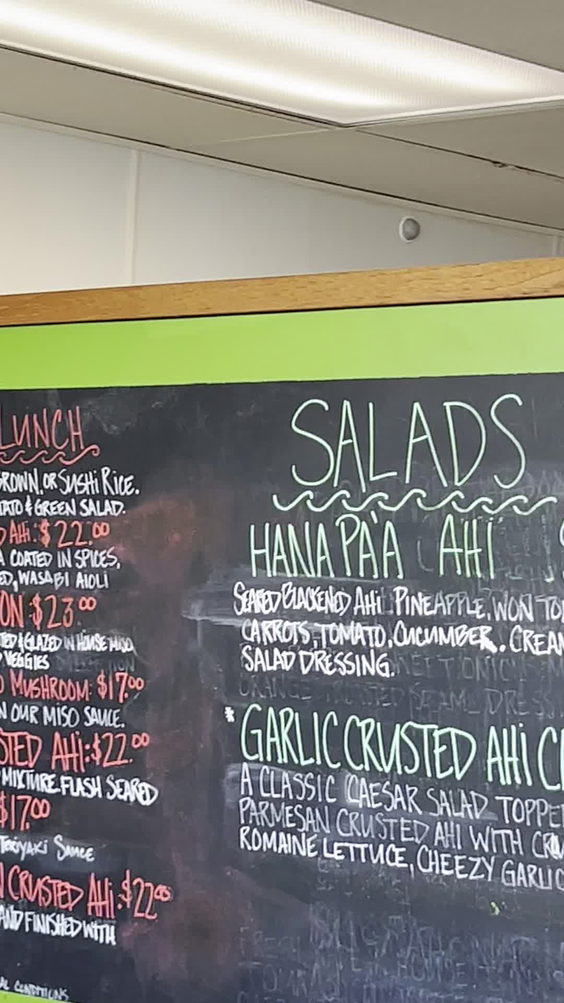 LUNCH
BROWN, OR SUSHI RICE.
& GREEN SALAD.
AHI: $22.00
COATED IN SPICES,
WASABI AIOLI
$23.00
& GLAZED IN HOUSE MISO
VEGGIES
MUSHROOM: $17.00
IN OUR MISO SAUCE.
AHI: $22.00
MIXTURE FLASH SEARED
$17.00
TERIYAKI SAUCE
CRUSTED AHI: $22.00
AND FINISHED WITH
CONDITIONS
SALADS
HANA PA'A AHI
SEARED BLACKENED AHI, PINEAPPLE, WON TO
CARROTS, TOMATO, CUCUMBER. CREAM
SALAD DRESSING.
* GARLIC CRUSTED AHI C
A CLASSIC CAESAR SALAD TOPPE
PARMESAN CRUSTED AHI WITH
ROMAINE LETTUCE, CHEEZY GARLIC